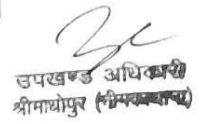 उपखण्ड अधिकारी
श्रीमाधोपुर (नीमकाथाना)